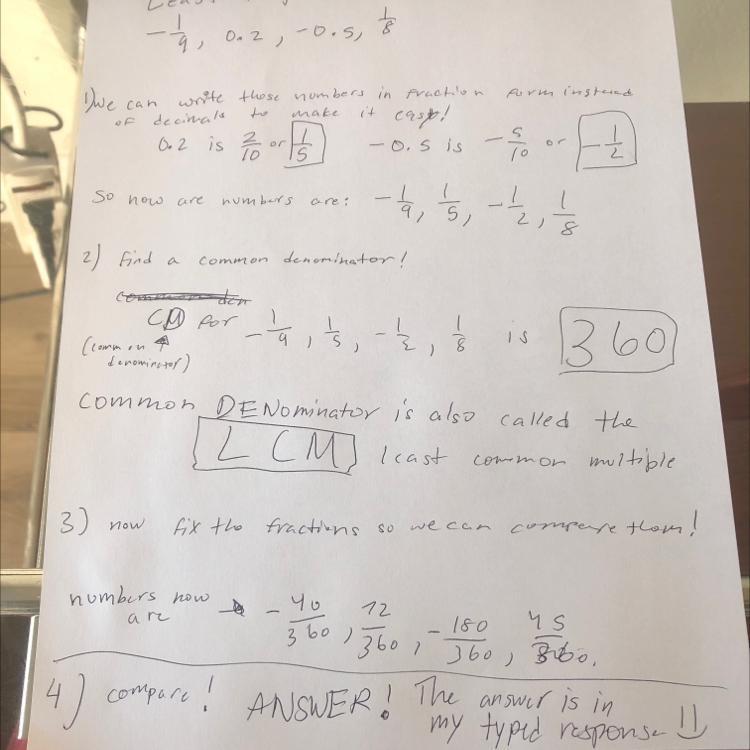 -1/9, 0.2, -0.5, 1/8
1) We can write those numbers in fraction form instead
of decimals to make it easy!
0.2 is 2/10 or 1/5 -0.5 is -5/10 or -1/2
So now are numbers are: -1/9, 1/5, -1/2, 1/8
2) Find a common denominator!
CD for -1/9, 1/5, -1/2, 1/8 is 360
(common
denominator)
common DENominator is also called the
LCM least common multiple
3) now fix the fractions so we can compare them!
numbers now
are -40/360, 72/360, -180/360, 45/360.
4) compare! ANSWER! The answer is in
my typed response